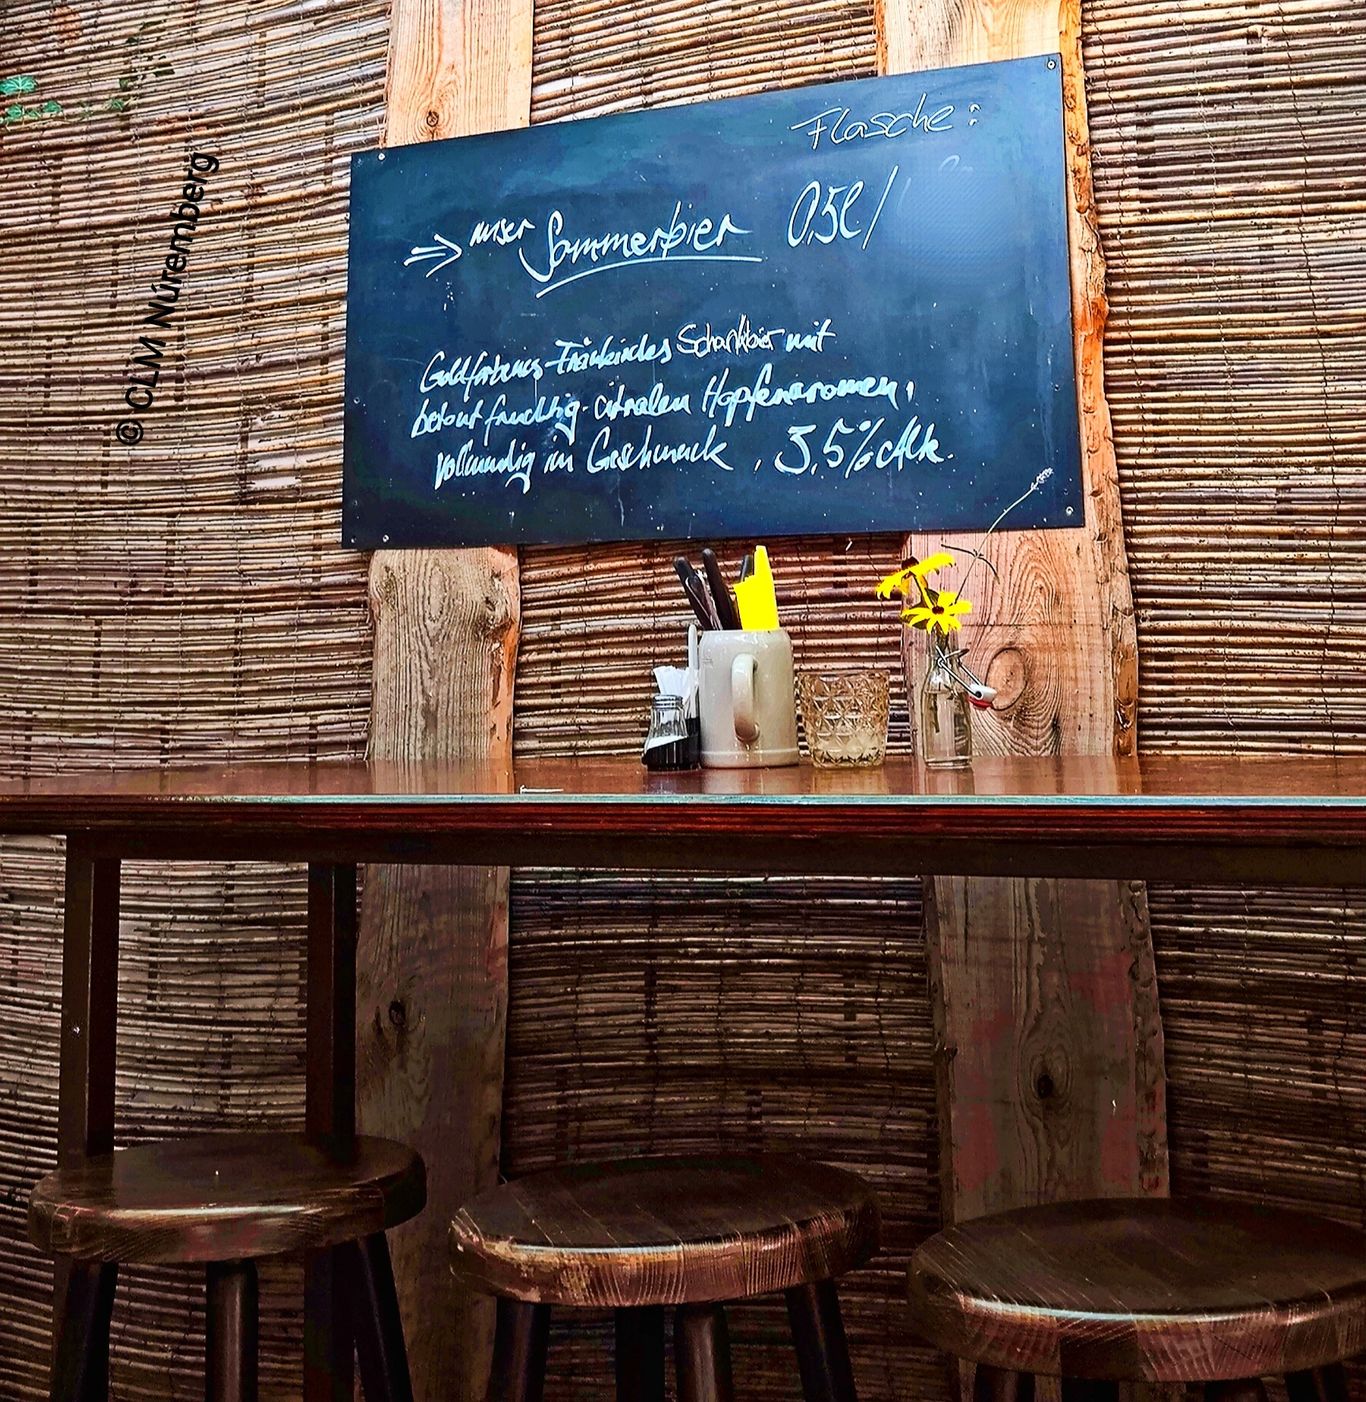 Flasche:
⇒ unser Sommerbier 0,5l/
Goldfarbenes Fränkisches Schankbier mit
betont fruchtig-citralen Hopfenaromen,
vollmundig im Geschmack, 3,5% Alk.
© CLM Núremberg